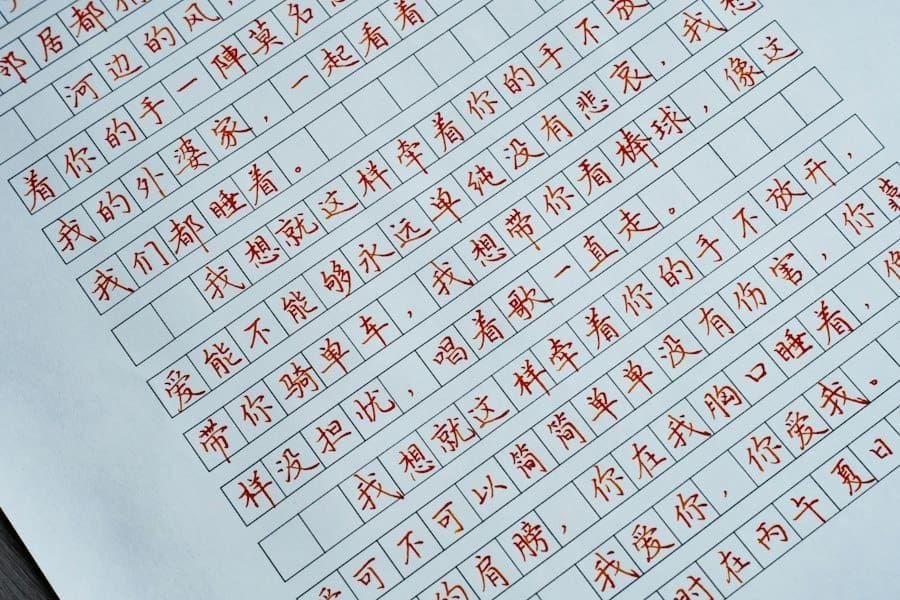 邻居都
河边的风，
着你的手一陣莫名
我的外婆家，一起看着
我们都睡着。
我想就这样牵着你的手不放
爱能不能够永远单纯没有悲哀，我想
带你骑单车，我想带你看棒球，像这
样没担忧，唱着歌一直走。
我想就这样牵着你的手不放开，
爱可不可以简简单单没有伤害，你靠
的肩膀，你在我胸口睡着，像
我爱你，你爱我。
时在丙午夏日